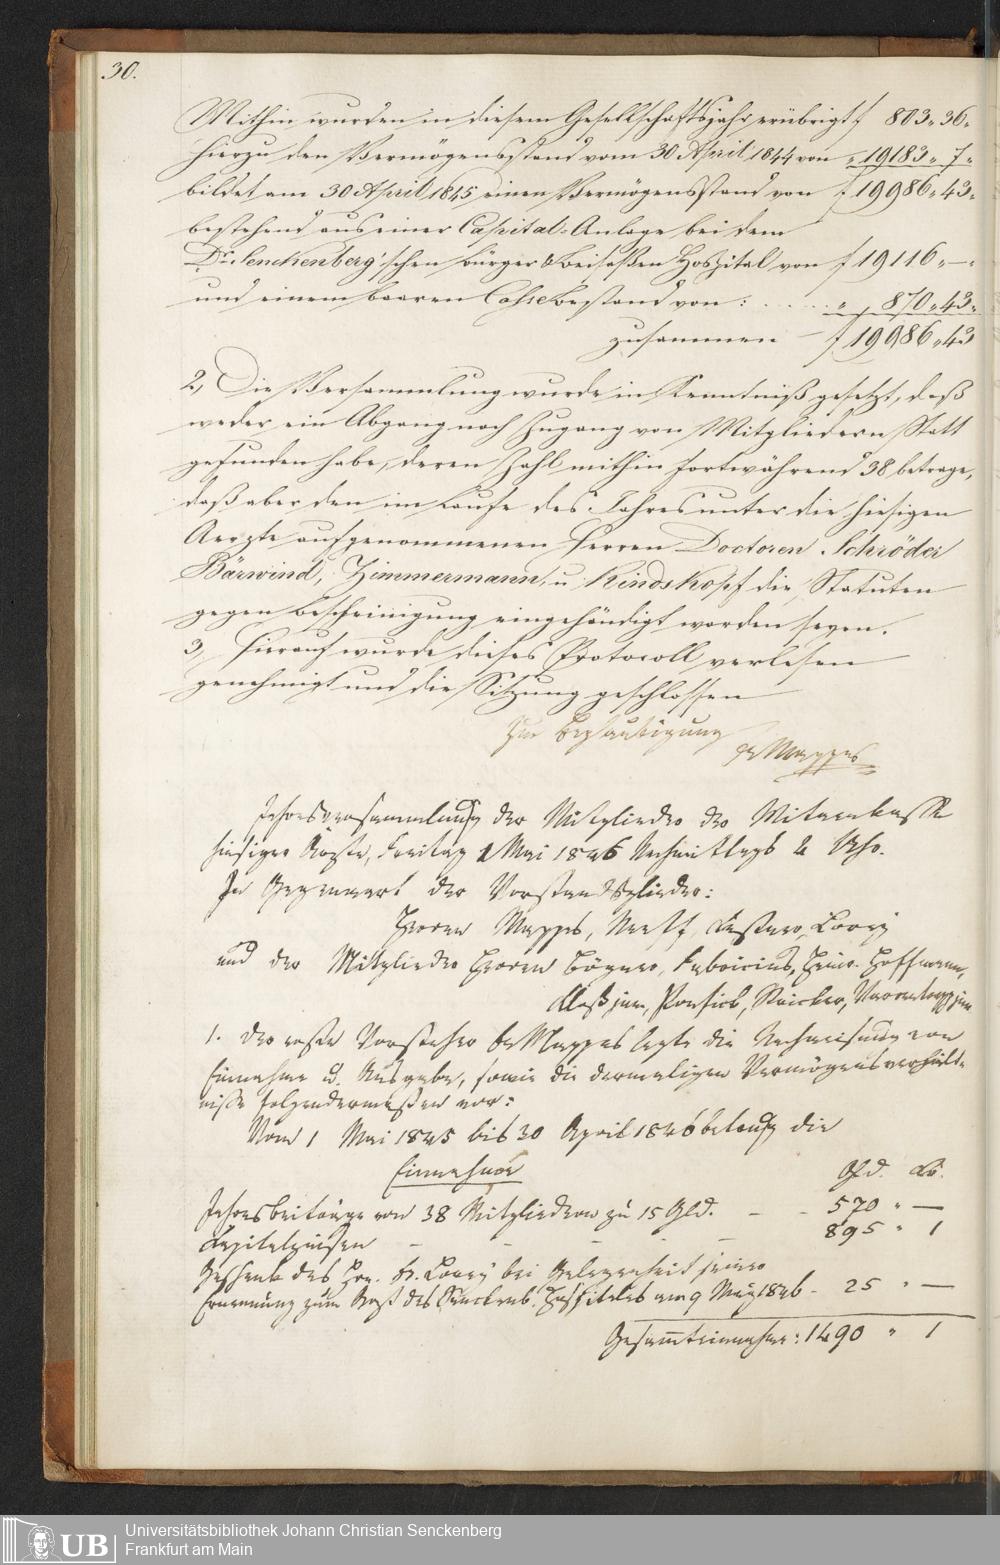 30.
Mithin wurden in diesem Gesellschaftsjahr erübrigt f 803„36„
hierzu den Vermögensstand vom 30 April 1844 von „ 19183„ 7„
bildet am 30 April 1845 einen Vermögensstand von f 19986„43„
bestehend aus einer Capital-Anlage bei dem
Dr. Senckenberg'schen Bürger & Beisaßen Hospital von f 19116„—„
und einem baaren Cassebestand von : . . . . . „ 870„43„
zusammen — f 19986„43
2, Die Versammlung wurde in Kenntniß gesetzt, daß
weder ein Abgang noch Zugang von Mitgliedern Statt
gefunden habe, deren Zahl mithin fortwährend 38 betrage,
daß aber den im Laufe des Jahres unter die hiesigen
Aerzte aufgenommenen Herren Doctoren Schröder
Bärwind, Zimmermann, u Kindskopf die Statuten
gegen Bescheinigung eingehändigt worden seyen.
3, Hierauf wurde dieses Protocoll verlesen
genehmigt und die Sitzung geschlossen
Zur Beglaubigung
Dr Mappes
Jahresversammlung der Mitglieder der Witwenkasse
hiesiger Ärzte, Freitag 1 Mai 1846 Nachmittags 2 Uhr.
In Gegenwart der Vorstandsglieder:
Herren Mappes, Neeff, Kestner, Lorey
und der Mitglieder Herren Bögner, Fabricius, Heinr. Hoffmann,
Kloß jun, Ponfick, Stricker, Varrentrapp jun
1. Der erste Vorsteher Dr Mappes legte die Nachweisung von
Einnahme u. Ausgabe, sowie die dermaligen Vermögensverhält-
nisse folgendermaßen vor:
Vom 1 Mai 1845 bis 30 April 1846 belauft die
Einnahme Gld. Kr.
Jahresbeiträge von 38 Mitgliedern zu 15 Gld. — - 570 „ —
Kapitalzinsen - - - - 895 „ 1
Geschenk des Hrn. Dr. Lorey bei Gelegenheit seiner
Ernennung zum Arzt des Senckenb. Hospitales am 9 März 1846 - 25 „ —
Gesamteinnahme: 1490 „ 1
UB
Universitätsbibliothek Johann Christian Senckenberg
Frankfurt am Main